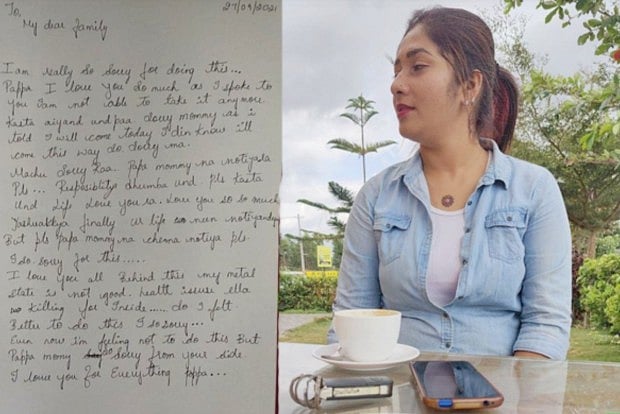 To,
27/09/2021
My dear family
I am really so sorry for doing this...
Pappa I love you so much as I spoke to
you I am not able to take it anymore.
Kasta aiyand undpaa sorry mommy as i
told I will come today I din know i'll
come this way so sorry ma.
Machu sorry kaa.. Papa mommy na notiyala
Pls... Responsiblity dhumba und. pls kasta
Und life love you sa. Love you so so much
finally ur life nun notiyandiya
But pls Papa mommy na chenna notiya pls.
I so sorry for this.....
I love you all Behind this my metal
state is not good. health issuse ella
killing for Inside..... so I felt
Better to do this I so sorry...
Even now i'm feeling not to do this But
Pappa mommy sorry from your side
I love you for Everything Pappa...